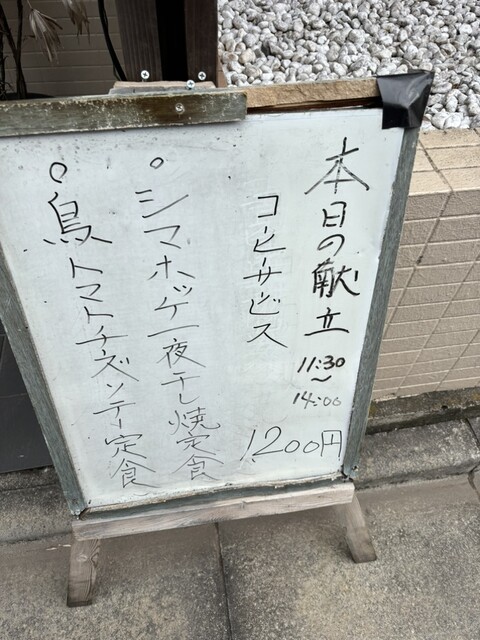 本日の献立
11:30
〜
14:00
コーヒーサービス
1200円
○シマホッケ一夜干し焼定食
○鳥トマトチーズソテー定食